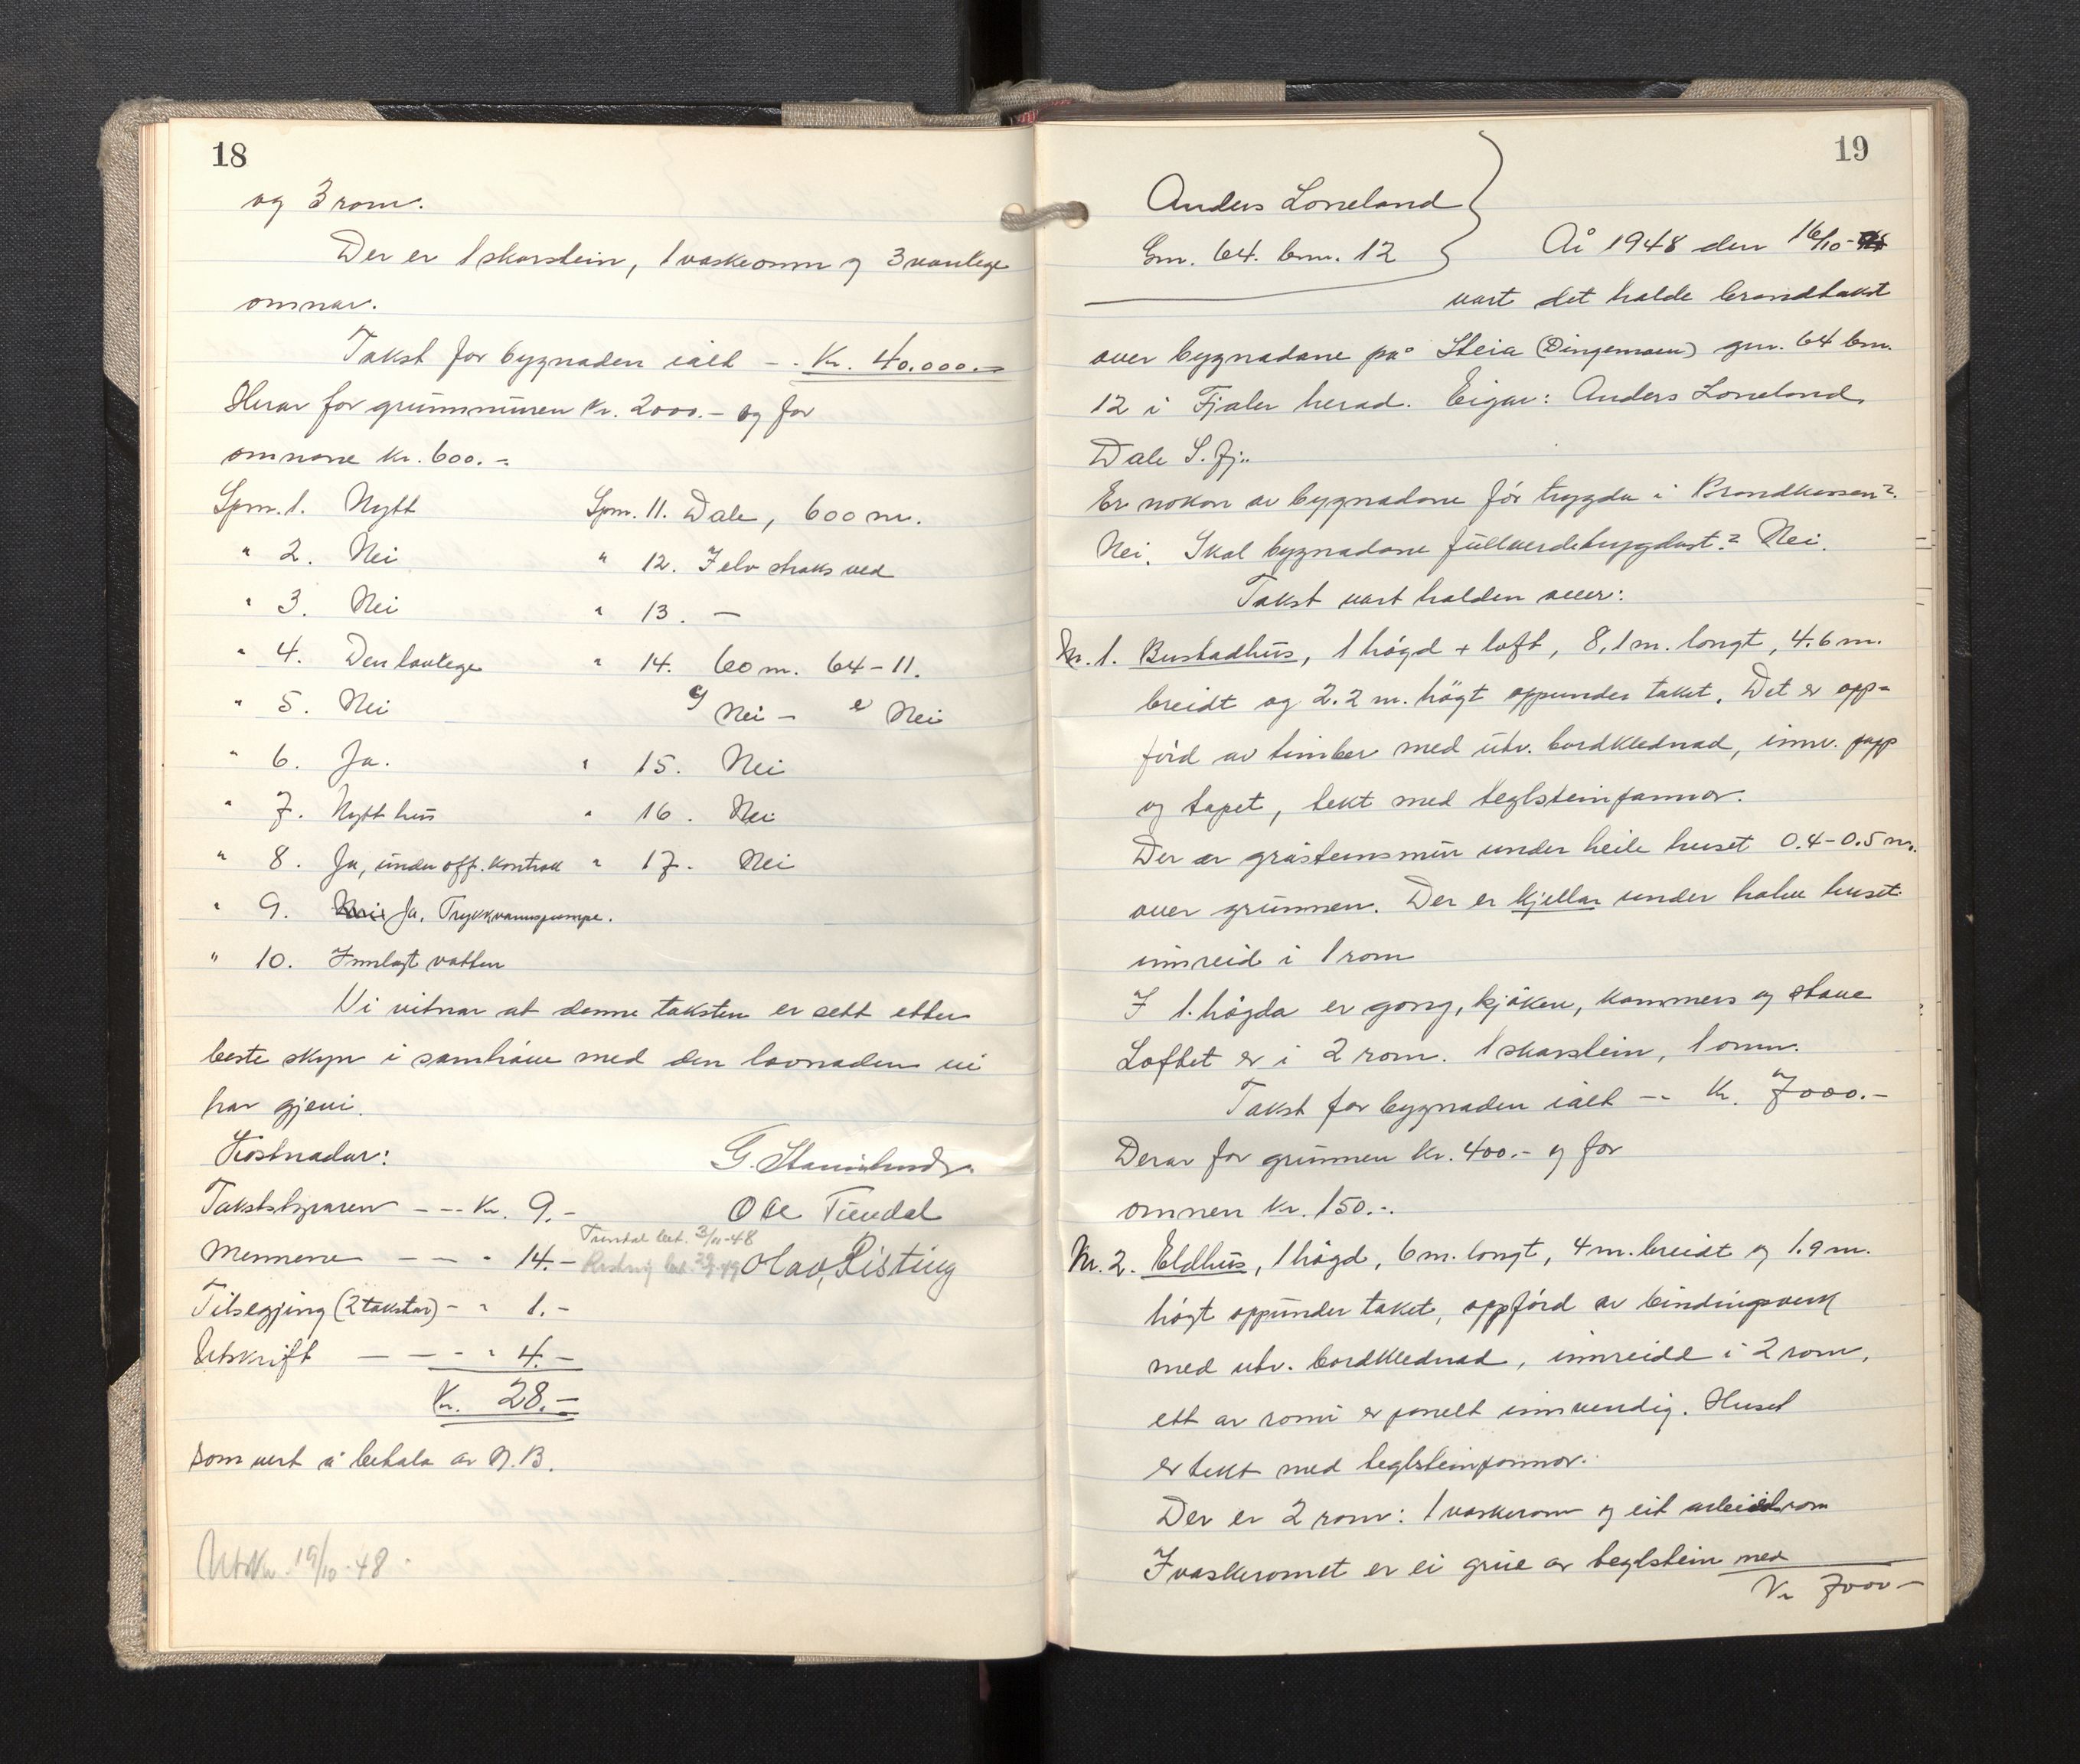 18
og 3 rom.
Der er 1 skorstein, 1 vaskeomn og 3 vanlege
omnar.
Takst for bygnaden ialt -. Kr. 40.000.-
Herav for grunnmuren kr. 2000.- og for
omnane kr. 600.-
Spm. 1. Nytt
" 2. Nei
" 3. Nei
" 4. Den lovlege
" 5. Nei
" 6. Ja.
" 7. Nytt hus
" 8. Ja, under off. kontroll
" 9. Ja. Trykkvannspumpe.
" 10. Innlagt vatten
Spm. 11. Dale, 600 m.
" 12. Ielv straks ved
" 13. —
" 14. 60 m. 64-11.
g Nei - e Nei
" 15. Nei
" 16. Nei
" 17. Nei
Vi vitnar at denne taksten er sett etter
beste skyn i samhøve med den lovnaden vi
har gjevi.
Kostnadar:
Takststyraren --- Kr. 9.-
Mennene — — " 14.-
Tilsegjing (2 takstar) - " 1.-
Utskrift — — - " 4.-
Kr. 28.-
som vert å betala av N.B.
G.
Ole Tundal
Tundal bet. 3/11-48
Olav Risting
Utskr. 19/10-48.
19
Anders Loneland
Gnr. 64. bnr. 12
År 1948 den 16/10-
vart det halde brandtakst
over bygnadane på Steia (Dingemoen) gnr. 64 bnr.
12 i Fjaler herad. Eigar: Anders Loneland,
Dale S. Fj..
Er nokon av bygnadane før trygda i Brandkassen?
Nei. Skal bygnadane fullverdetrygdast? Nei.
Takst vart halden over:
Nr. 1. Bustadhus, 1 høgd + loft, 8,1 m. langt, 4.6 m.
breidt og 2.2 m. högt oppunder taket. Det er opp-
førd av timber med utv. bordklednad, innv. papp
og tapet, tekt med teglsteinpannor.
Der er gråsteinsmur under heile huset 0.4-0.5 m.
over grunnen. Der er kjellar under halve huset
innreid i 1 rom
I 1. høgda er gong, kjøken, kammers og stove
Loftet er i 2 rom. 1 skorstein, 1 omn.
Takst for bygnaden ialt -- Kr. 7000.-
Derav for grunnen kr. 400.- og for
omnen kr. 150.-.
Nr. 2. Eldhus, 1 høgd, 6 m. langt, 4 m. breidt og 1.9 m.
høgt oppunder taket, oppførd av bindingsverk
med utv. bordklednad, innreidd i 2 rom,
ett av romi er panelt innvendig. Huset
er tekt med teglsteinpannor.
Der er 2 rom: 1 vaskerom og eit arbeidsrom
I vaskeromet er ei grue av teglstein med
Kr 7000-